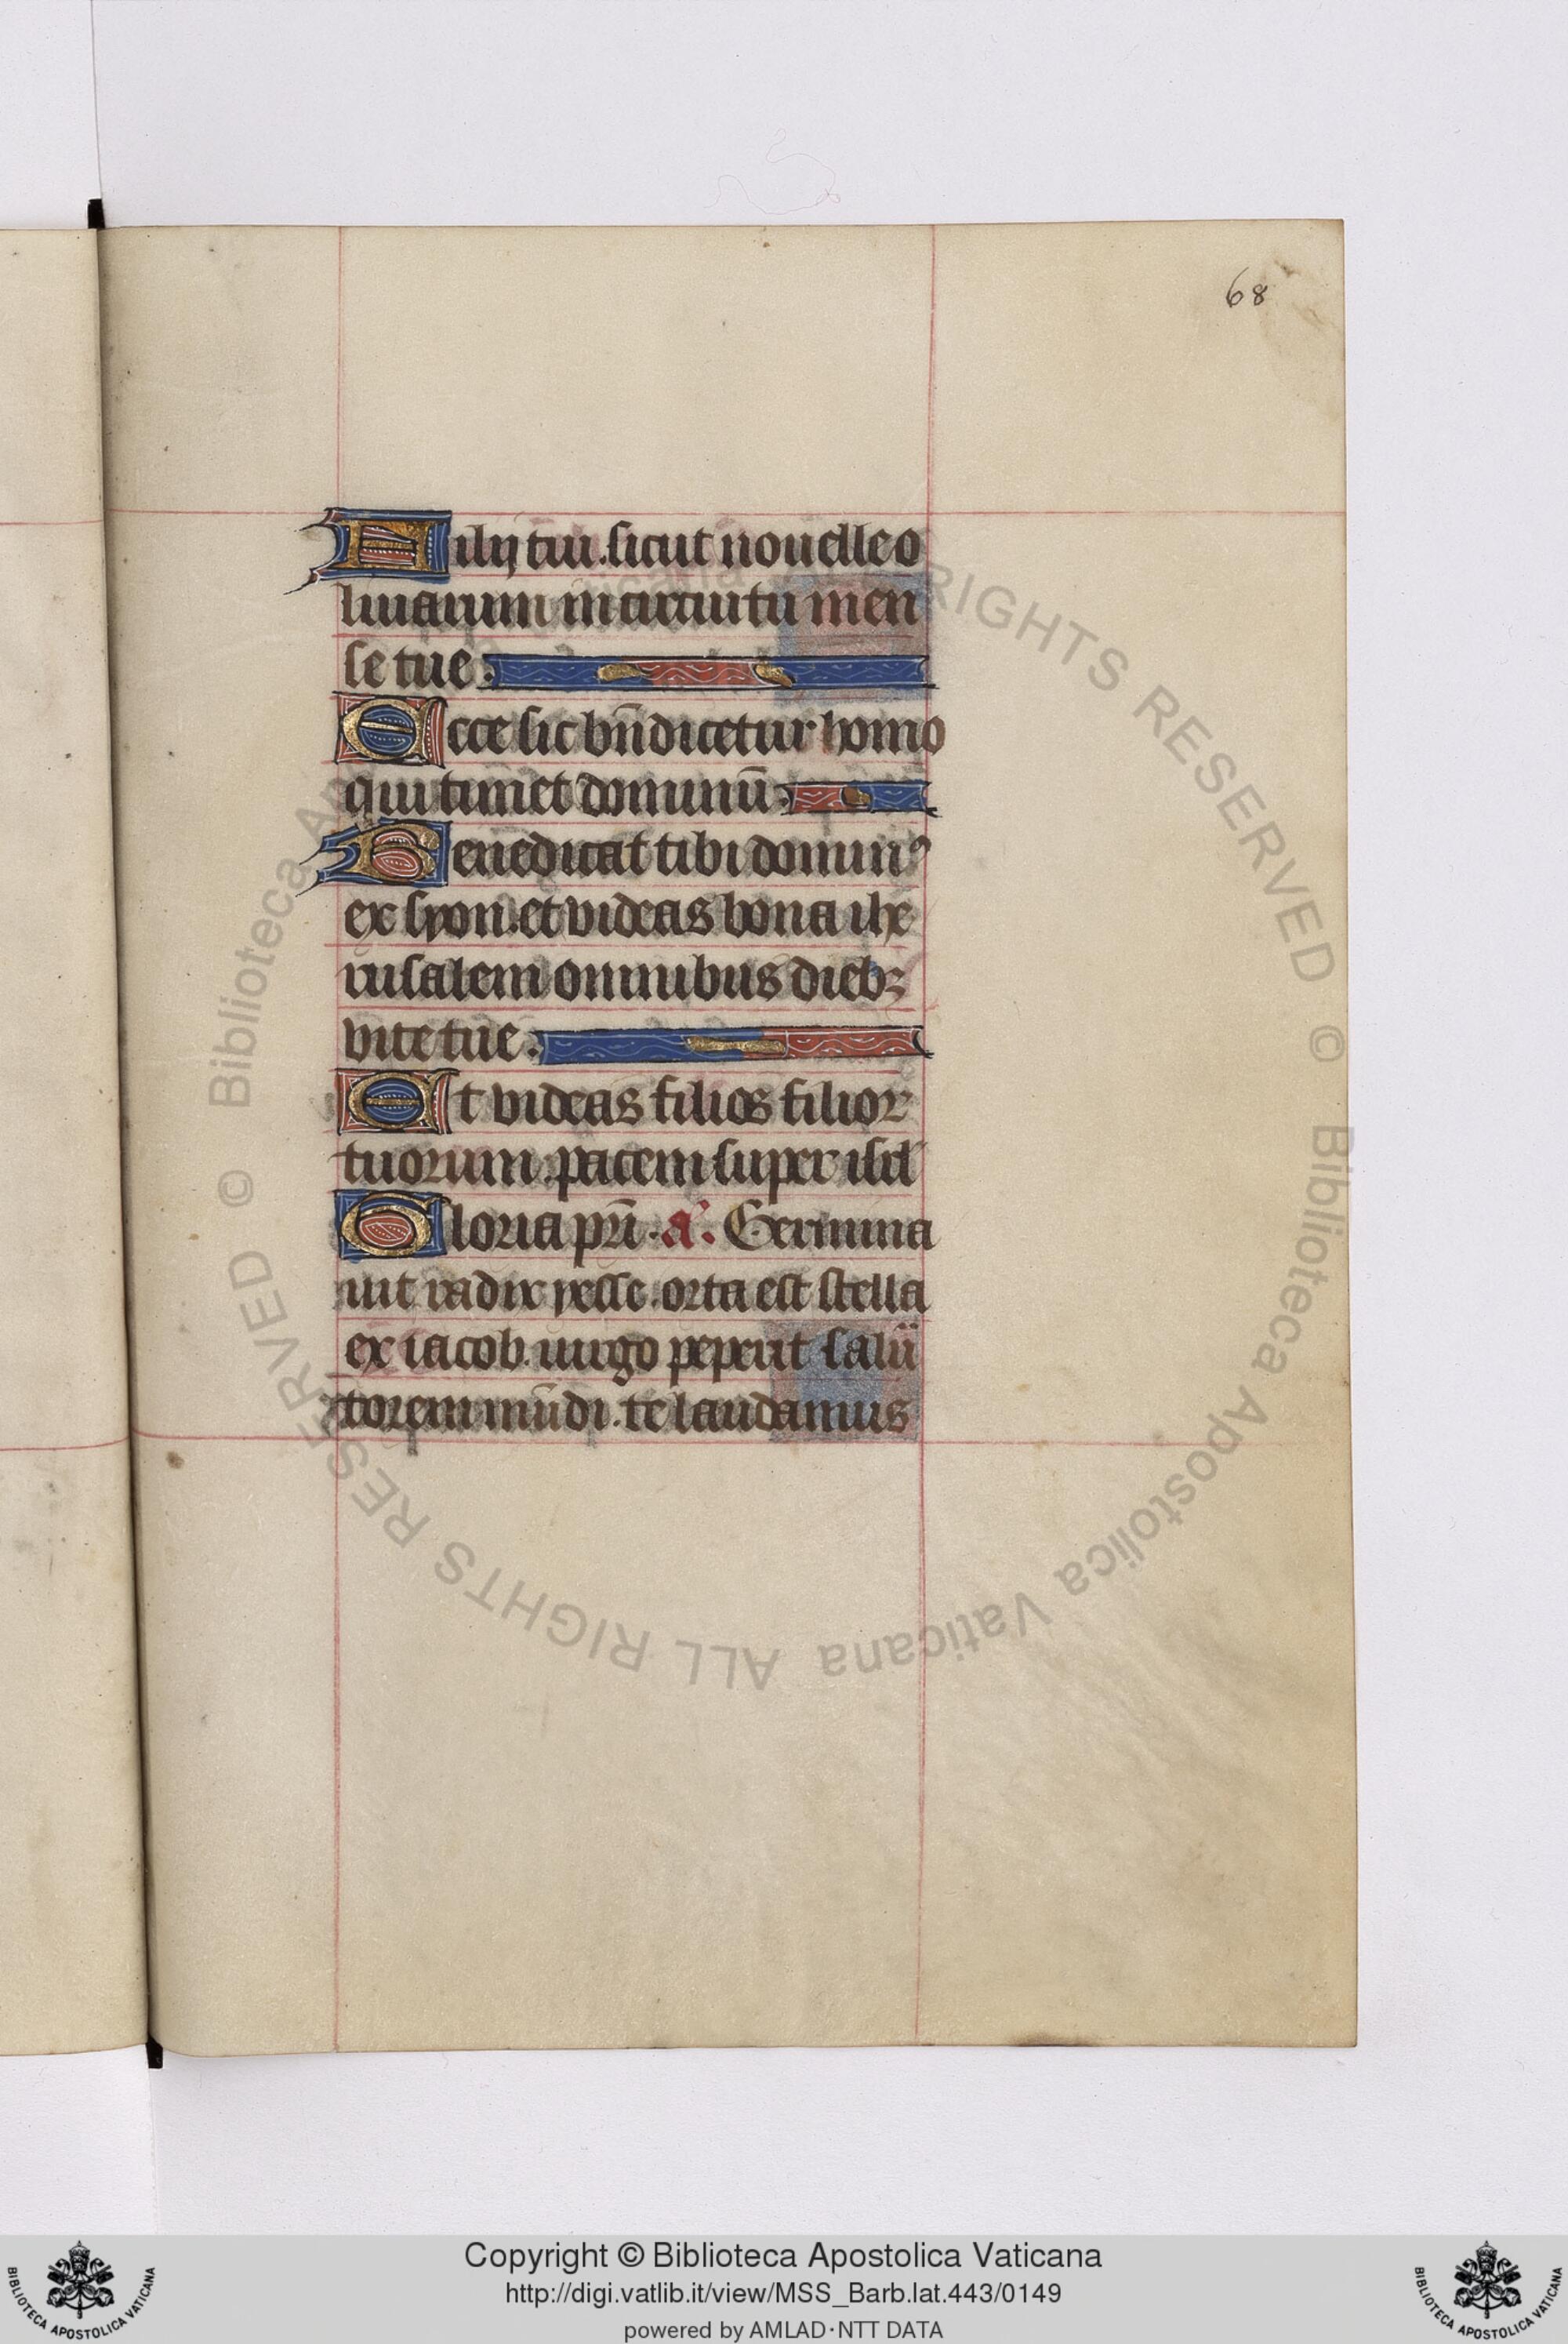 68
Filij tui. sicut nouelle o
liuarum in circuitu men
se tue.
Ecce sic bn̄dicetur homo
qui timet dominū.
Benedicat tibi dominꝰ
ex syon. et videas bona ihe
rusalem omnibus diebꝫ
vite tue.
Et videas filios filior
tuorum. pacem super isrl̄
Gloria pr̄i. a̾. Germina
uit radix yesse. orta est stella
ex iacob. uirgo peperit salu
torem mūdi. te laudamus
© Biblioteca Apostolica Vaticana ALL RIGHTS RESERVED
© Biblioteca Apostolica Vaticana ALL RIGHTS RESERVED
Copyright © Biblioteca Apostolica Vaticana
http://digi.vatlib.it/view/MSS_Barb.lat.443/0149
powered by AMLAD·NTT DATA
BIBLIOTECA APOSTOLICA VATICANA
BIBLIOTECA APOSTOLICA VATICANA